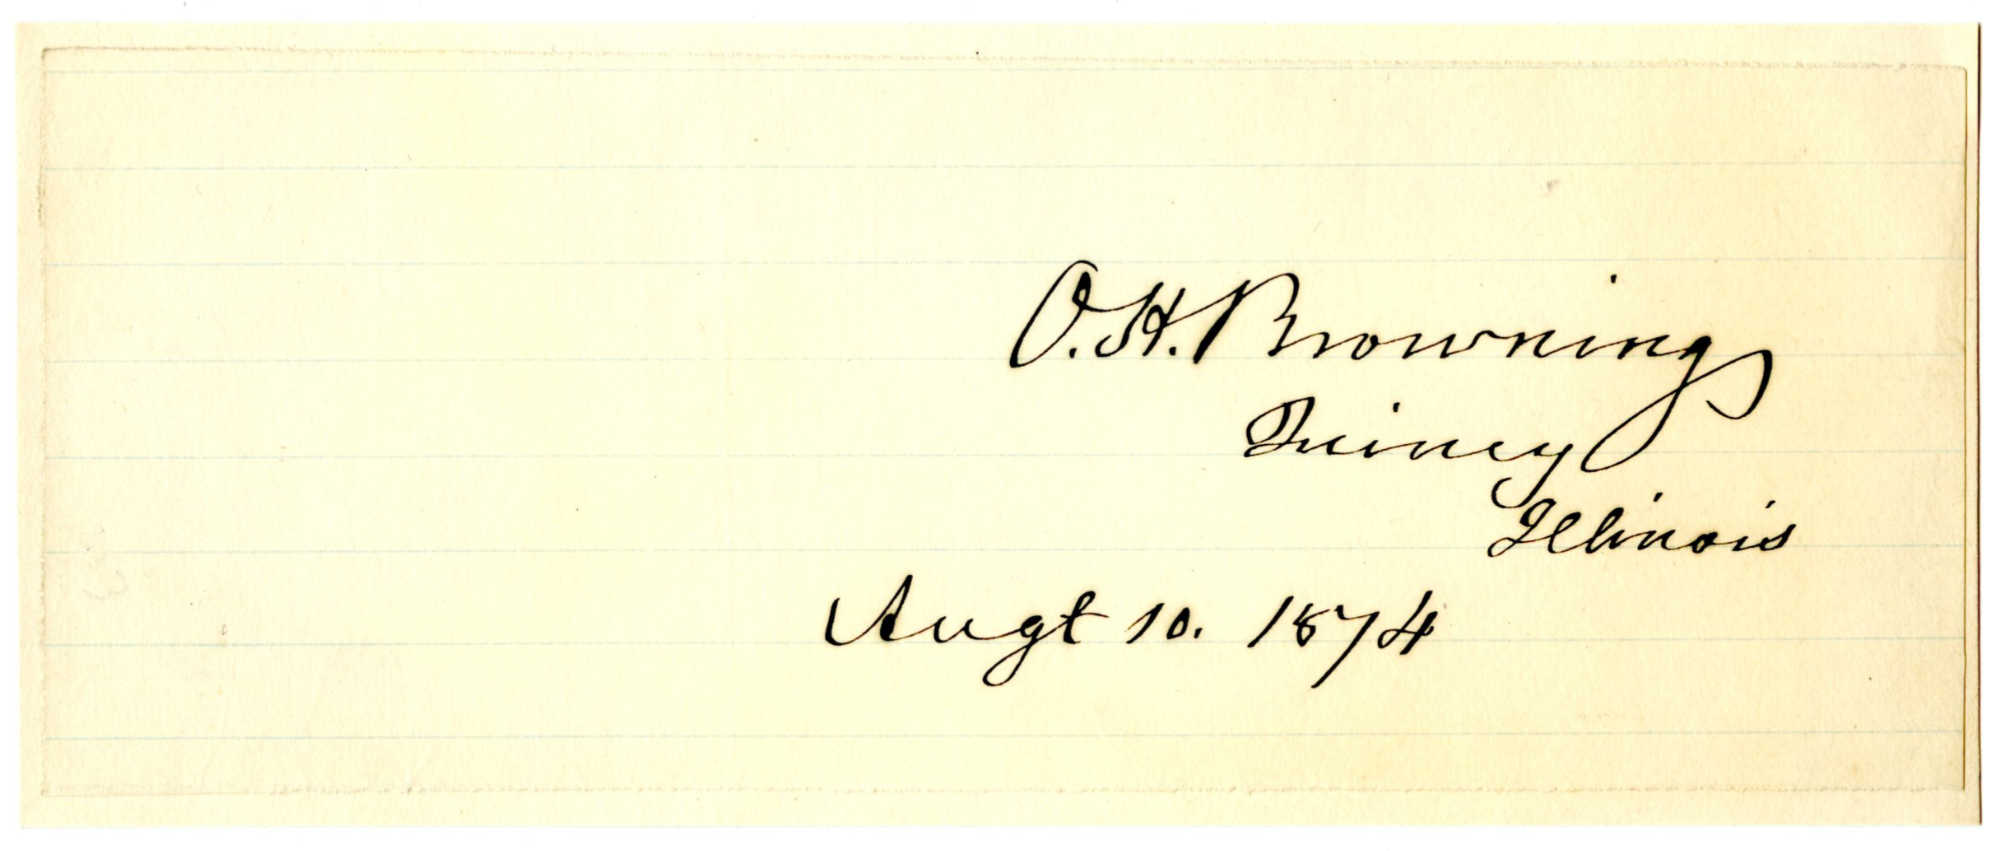 O. H. Browning
Quincy
Illinois
Augt 10. 1874